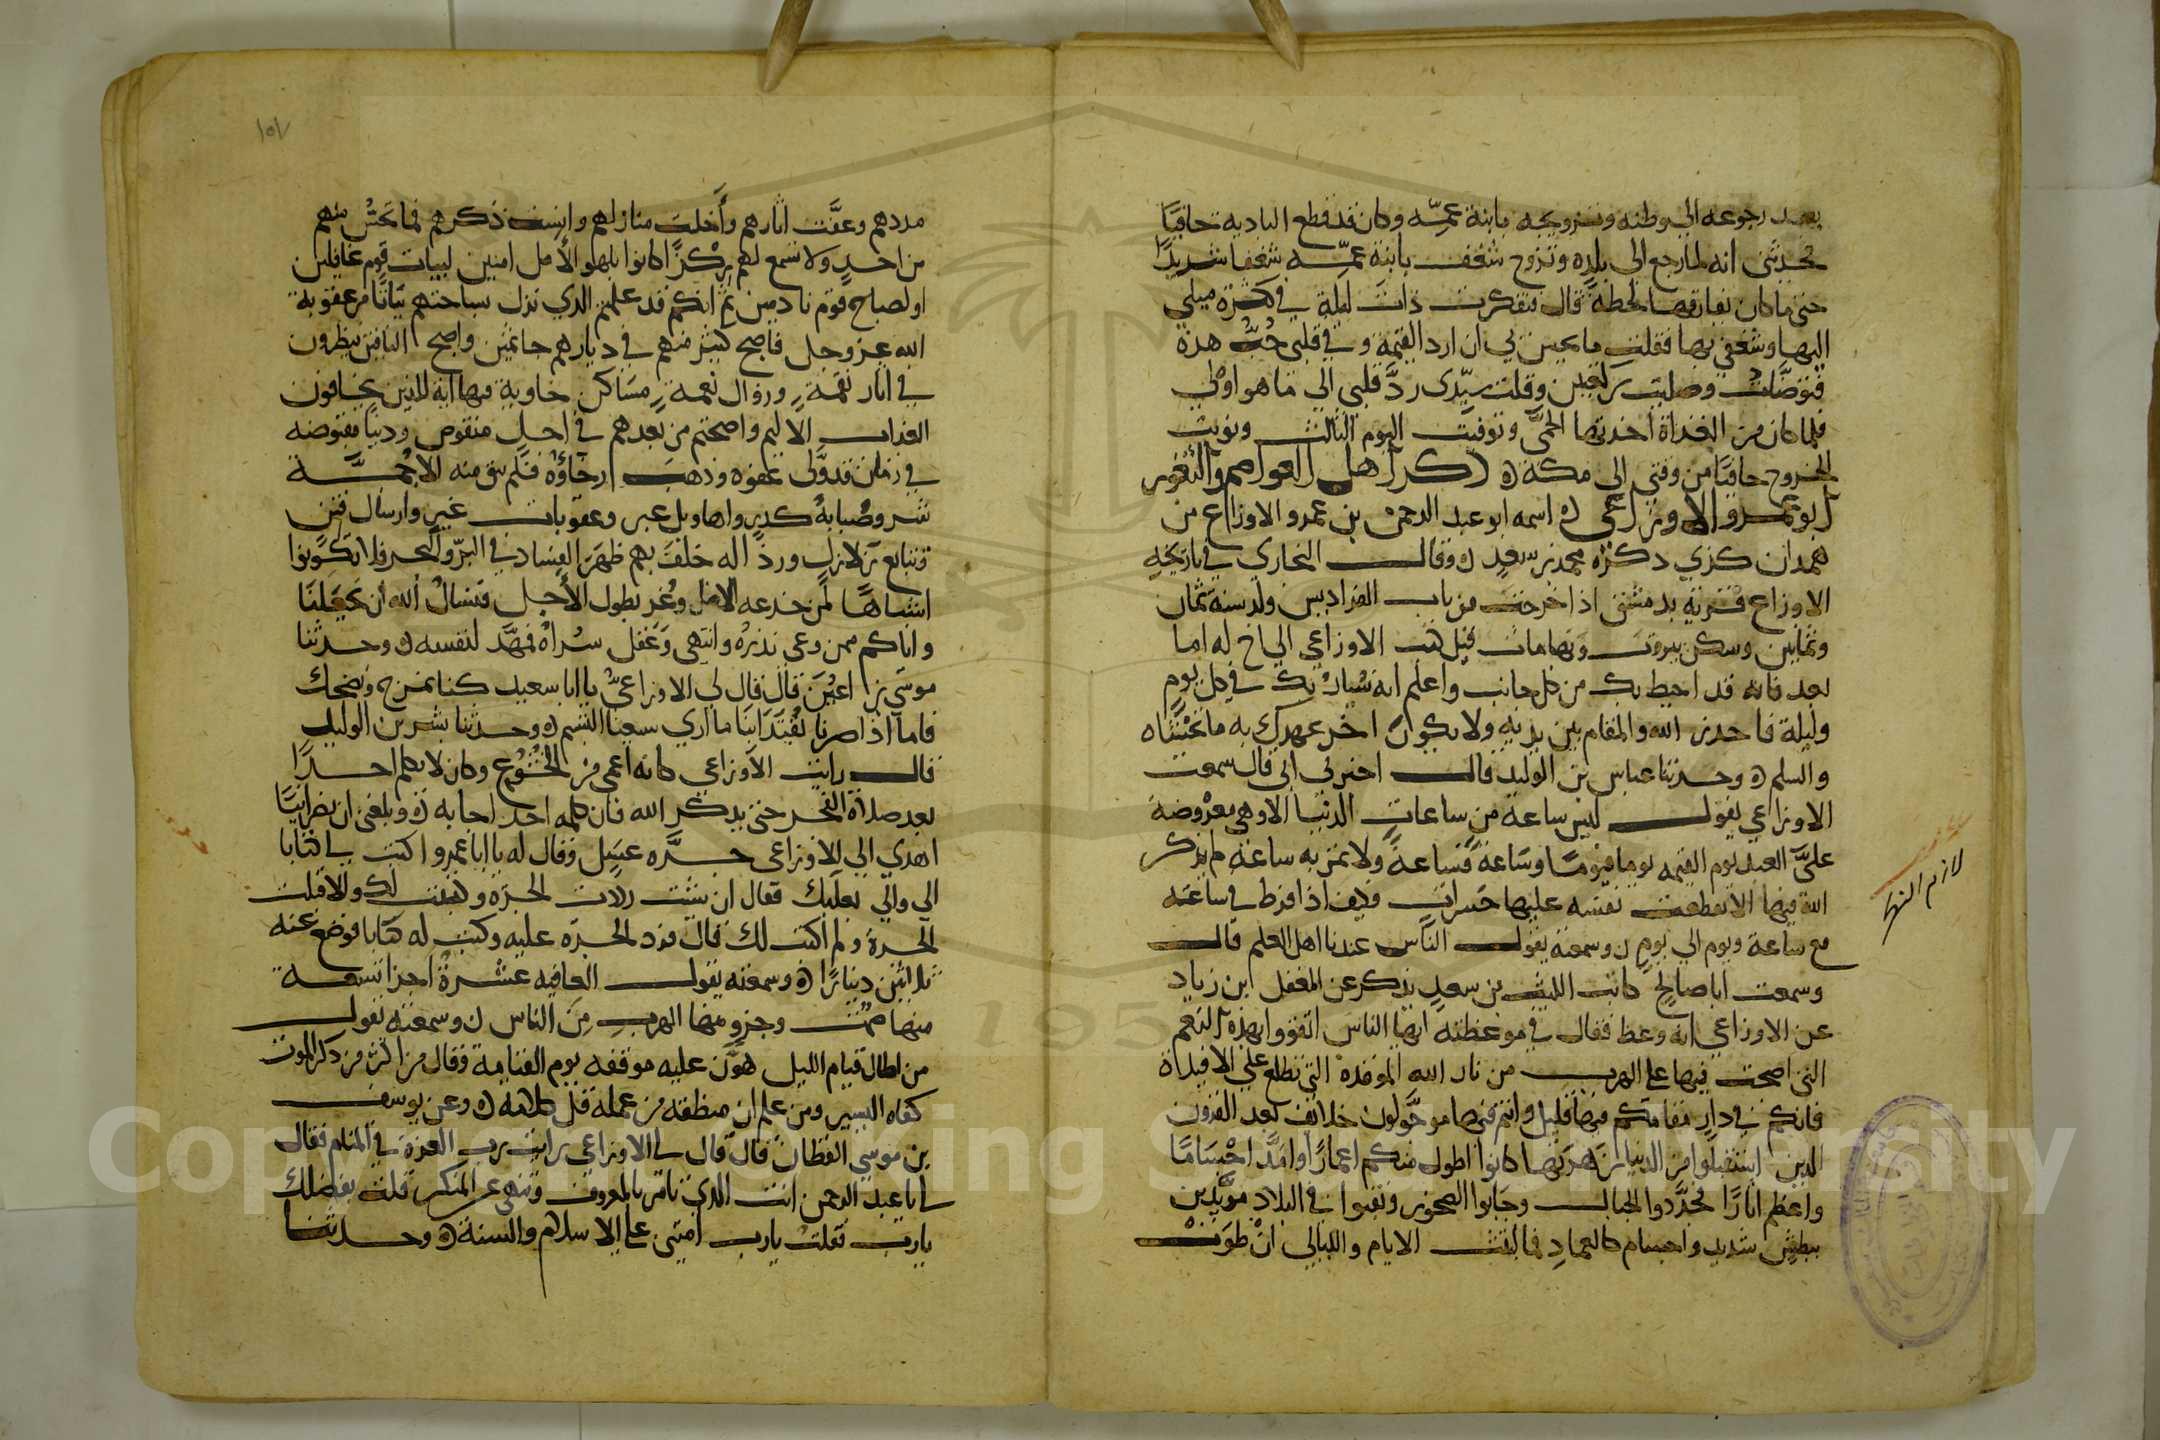 بعد رجوعه الي وطنه وتزويجه بابنة عمه وكان قد قطع البادية حافيا
فحدثني انه لما رجع الى بلده وتزوج شغف بابنة عمه شغفا شديدا
حتى ما كان يفارقها لحظة قال فتفكرت ذات ليلة في كثرة ميلي
اليها وشغفي بها فقلت ما يحسن بي ان ارد القيمة وفي قلبي حب هذه
فتوضات وصليت ركعتين وقلت سيدي رد قلبي الي ما هو اولي
فلما كان من الغداة اخذتها الحمى وتوفيت اليوم الثالث ونويت
الخروج حافيا من وقتي الى مكة ه ذكر اهل العواصم والثغور
ابو عمرو الاوزاعي ه اسمه ابو عبد الرحمن بن عمرو الاوزاع من
همدان كذي ذكره محمد بن سعد ه وقال البخاري في تاريخه
الاوزاع قرية بدمشق اذا خرجت من باب الفراديس ولد سنة ثمان
وثمانين وسكن بيروت وبها مات قيل كتب الاوزاعي الي اخ له اما
بعد فانه قد احيط بك من كل جانب واعلم انه يسار بك في كل يوم
وليلة فاحذر الله والمقام بين يديه ولا يكون اخر عهدك به
والسلم ه وحدثنا عباس بن الوليد قال اخبرني ابي قال سمعت
الاوزاعي يقول ليس ساعة من ساعات الدنيا الا وهي معروضة
على العبد يوم القيمه يوما فيوما وساعة فساعة ولا تمر به ساعة لم يذكر
الله فيها الا تقطعت نفسه عليها حسرات فكيف اذا فرط في ساعته
مع ساعة ويوم الي يوم ه وسمعته يقول الناس عندنا اهل العلم قال
وسمعت ابا صالح كاتب الليث بن سعد يذكر عن المغفل ابن زياد
عن الاوزاعي انه وعظ فقال في موعظته ايها الناس اتقووا بهذه النعم
التي اصبحت فيها على الهرب من نار الله الموقدة التي تطلع على الافيدة
فانكم في دار مقامكم فيها قليل وانتم فيها موجلون خلائف بعد القرون
الذين استقبلوا من الدنيا زهرتها كانوا اطول منكم اعمارا وامد اجساما
واعظم اثارا فخددوا الجبال وجابوا الصخور ونقبوا في البلاد مؤيدين
ببطش شديد واجسام كالعماد فما لبثت الايام والليالي ان طوت
لازم النهار
١٥٧
مددهم وعفت اثارهم وأخلت منازلهم وانست ذكرهم فما تحس منهم
من احد ولا تسمع لهم ركزا كانوا بلهو الأمل امنين لبيات قوم غافلين
او لصباح قوم نادمين ثم انكم قد علمتم الذي نزل بساحتهم بياتا من عقوبة
الله عز وجل فاصبح كثير منهم في ديارهم جاثمين واصبح الباقين ينظرون
في اثار نقمة وزوال نعمة مساكن خاوية فيها اية للذين يخافون
العذاب الاليم واصبحتم من بعدهم في اجل منقوص ودنيا مقبوضه
في زمان قد ولى عفوه وذهب رخاؤه فلم يبق منه الا حمة
شر وصبابة كدر واهاويل عبر وعقوبات غير وارسال فتن
وتتابع زلازل ورذاله خلف بهم ظهر الفساد في البر والبحر فلا تكونوا
اشباها لمن خدعه الامل وغر بطول الأجل فنسال الله ان يجعلنا
واياكم ممن وعى نذره وانتهى وعقل سراه فمهد لنفسه ه وحدثنا
موسى بن اعين قال قال لي الاوزاعي يا ابا سعيد كنا نمزح ونضحك
فاما اذا صرنا يقتدا بنا ما ارى يسعنا التبسم ه وحدثنا بشر بن الوليد
قال رايت الاوزاعي كانه اعمى من الخشوع وكان لا يكلم احدا
بعد صلاة الفجر حتى يذكر الله فان كلمه احد اجابه ه وبلغني ان نصرانيا
اهدي الي الاوزاعي جره عسل وقال له يا ابا عمرو اكتب لي كتابا
الى والي بعلبك فقال ان شئت رددت الجره وكتبت لك والا قبلت
الجرة ولم اكتب لك قال فرد الجره عليه وكتب له كتابا فوضع عنه
ثلاثين دينارا ه وسمعته يقول العافيه عشرة اجزا تسعة
منها صمت وجزو منها الهرب من الناس ه وسمعته يقول
من اطال قيام الليل هون عليه موقفه يوم القيامة وقال من اكثر من ذكر الموت
كفاه اليسير ومن علم ان منطقه من عمله قل كلامه ه وعن يوسف
بن موسى القطان قال قال لي الاوزاعي رايت رب العزة في المنام فقال
لي ابا عبد الرحمن انت الذي تامر بالمعروف وتنهي عن المنكر قلت بفضلك
يا رب فقلت يا رب امتني على الاسلام والسنة ه وحدثنا
Copyright © King Saud University
195